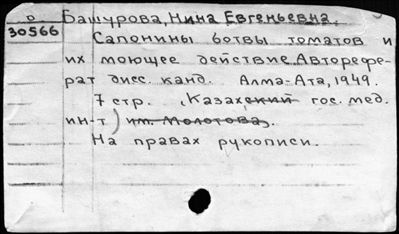 Башурова, Нина Евгеньевна.
30566
Сапонины ботвы томатов и
их моющее действие. Авторефе-
рат дисс. канд. Алма-Ата, 1949.
7 стр. (Казахский гос. мед.
ин-т) им. Молотова).
На правах рукописи.